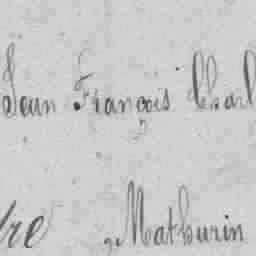 Jean François Charl
re Mathurin